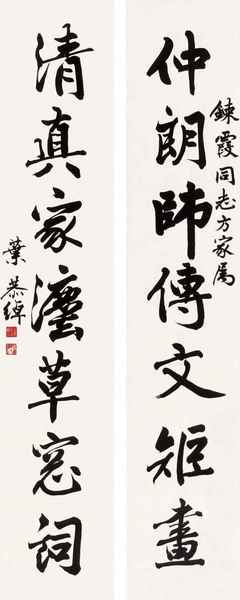 鍊霞同志方家属
仲朗師傳文矩畫
清真家灋草窓詞
葉恭綽